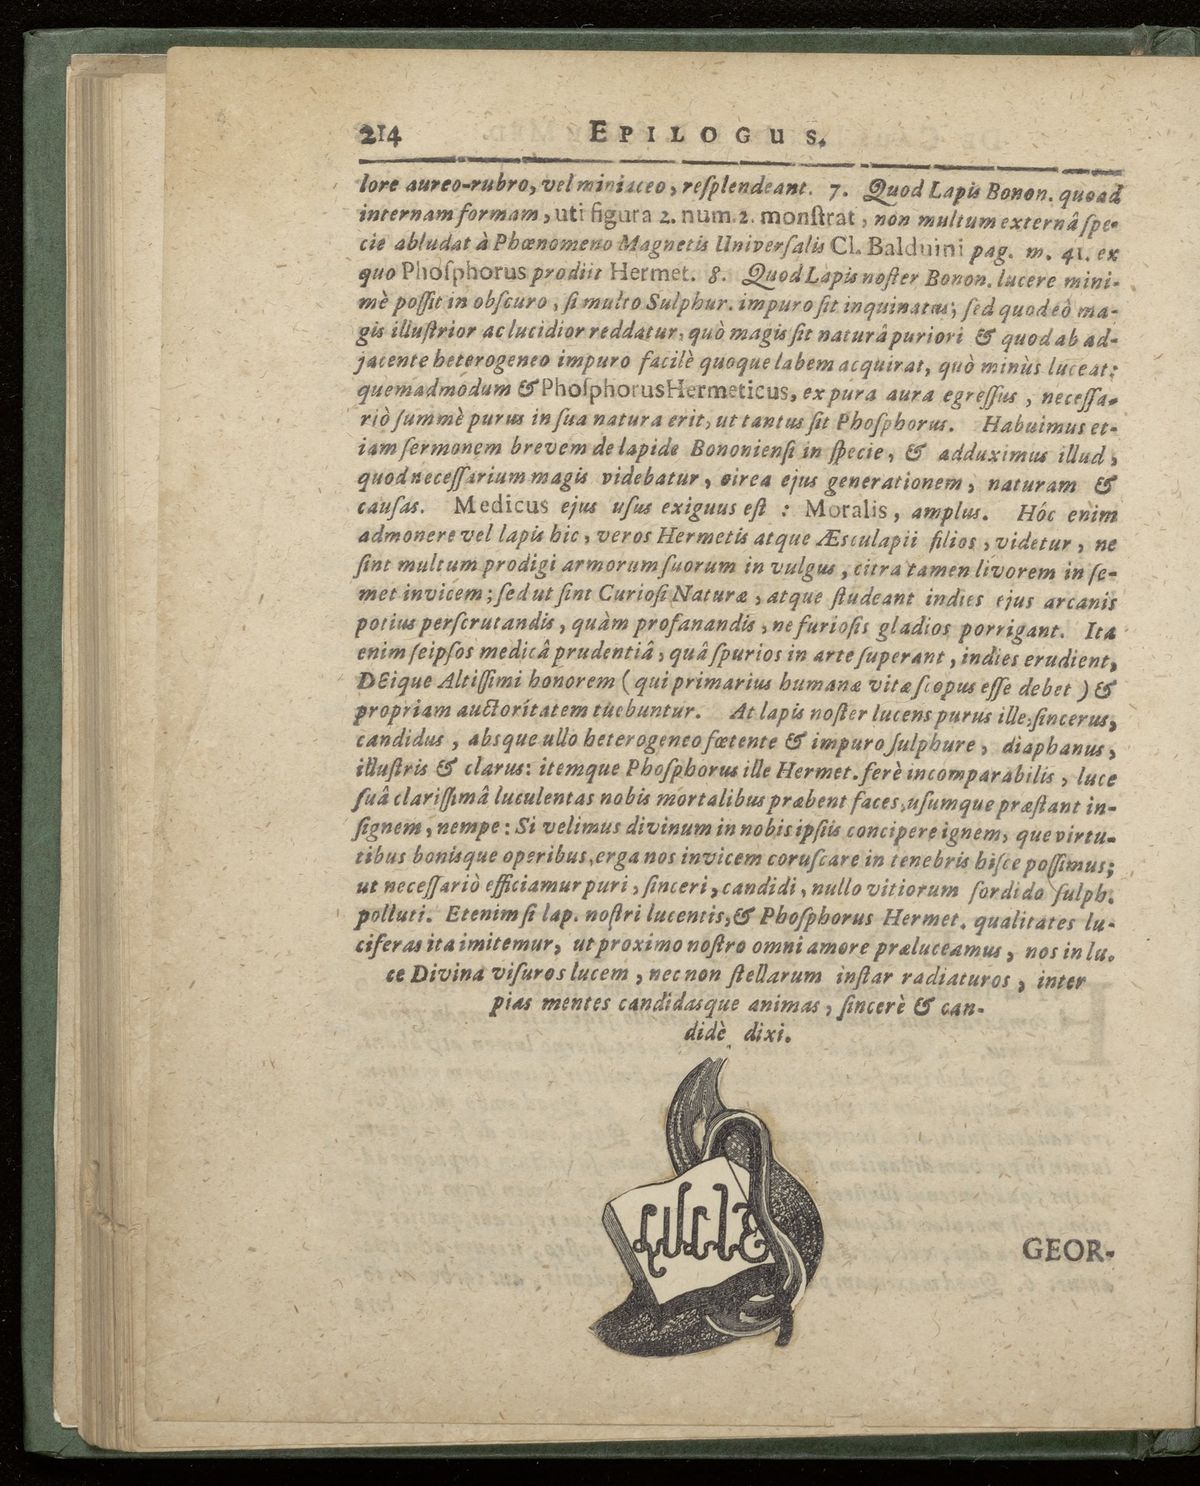 214 EPILOGUS.
lore aureo-rubro, vel miniaceo, reſplendeant. 7. Quod Lapis Bonon. quoad
internam formam, uti figura 2. num. 2. monſtrat, non multum externâ ſpe-
cie abludat à Phœnomeno Magnetis Univerſalis Cl. Balduini pag. m. 41. ex
quo Phoſphorus prodiit Hermet. 8. Quod Lapis noſter Bonon. lucere mini-
mè poſſit in obſcuro, ſi multo Sulphur. impuro ſit inquinatus; ſed quod eò ma-
gis illuſtrior ac lucidior reddatur, quò magis ſit naturâ puriori & quod ab ad-
jacente heterogeneo impuro facilè quoque labem acquirat, quò minùs luceat:
quemadmodum & Phoſphorus Hermeticus, ex pura aura egreſſus, neceſſa-
riò ſummè purus in ſua natura erit, ut tantus ſit Phoſphorus. Habuimus et-
iam ſermonem brevem de lapide Bononienſi in ſpecie, & adduximus illud,
quod neceſſarium magis videbatur, circa ejus generationem, naturam &
cauſas. Medicus ejus uſus exiguus eſt : Moralis, amplus. Hôc enim
admonere vel lapis hic, veros Hermetis atque Æsculapii filios, videtur, ne
ſint multum prodigi armorum ſuorum in vulgus, citra tamen livorem in ſe-
met invicem; ſed ut ſint Curioſi Naturæ, atque ſtudeant indies ejus arcanis
potius perſcrutandis, quàm profanandis, ne furioſis gladios porrigant. Ita
enim ſeipſos medicâ prudentiâ, quâ ſpurios in arte ſuperant, indies erudient,
DEique Altiſſimi honorem (qui primarius humanæ vitæ ſcopus eſſe debet) &
propriam auctoritatem tuebuntur. At lapis noſter lucens purus ille, ſincerus,
candidus, absque ullo heterogeneo fœtente & impuro ſulphure, diaphanus,
illuſtris & clarus: itemque Phoſphorus ille Hermet. ferè incomparabilis, luce
ſuâ clariſſimâ luculentas nobis mortalibus præbent faces, uſumque præſtant in-
ſignem, nempe: Si velimus divinum in nobis ipſiis concipere ignem, que virtu-
tibus bonisque operibus, erga nos invicem coruſcare in tenebris hiſce poſſimus;
ut neceſſariò efficiamur puri, ſinceri, candidi, nullo vitiorum ſordido ſulph.
polluti. Etenim ſi lap. noſtri lucentis, & Phoſphorus Hermet. qualitates lu-
ciferas ita imitemur, ut proximo noſtro omni amore præluceamus, nos in lu-
ce Divina viſuros lucem, nec non ſtellarum inſtar radiaturos, inter
pias mentes candidasque animas, ſincerè & can-
didè dixi.
GEOR-